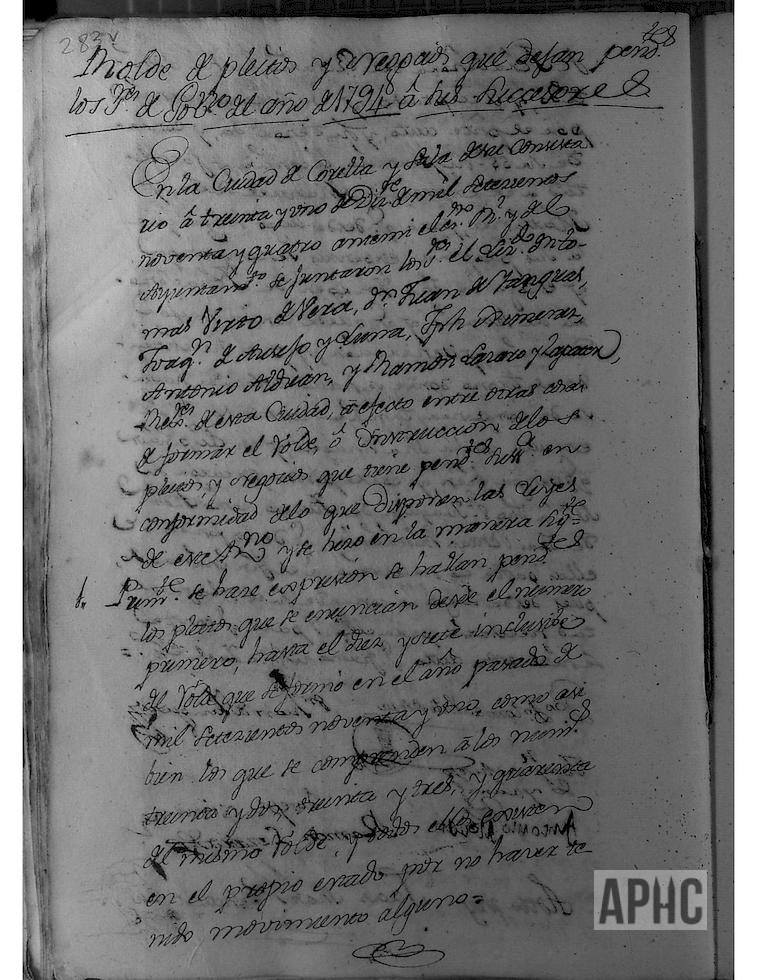 283v
Rolde de pleitos y negocios que dejan pend.tes
los S.res de Gov.no del año de 1794 â sus succesores
En la Ciudad de Corella y Sala de su Consisto
rio â treinta y uno de Diz.re de mil setecientos
noventa y quatro ante mi el es.no R.l y del
Ayuntam.to se juntaron los S.res el Liz.do Dn To-
mas Virto de Vera, Dn Juan de Yanguas,
Joaq.n de Ausejo y Luna, Jph Ximenez,
Antonio Alduan, y Ramon Lazaro y Zapater,
Reg.res de esta Ciudad, â efecto entre otras cosas
de formar el Rolde, ô Instruccion de los
pleitos, y negocios que tiene pend.tes su S.a en
conformidad de lo que disponen las Leyes
de este R.no y se hizo en la manera sig.te
1. Prim.te se haze expresion se hallan pend.tes
los pleitos que se enuncian desde el numero
primero, hasta el diez y siete inclusive
del Rolde que se formò en el año pasado de
mil setecientos noventa y uno, como asi
bien los que se comprenden â los num.s
treinta y dos, treinta y tres, y quarenta
del mismo Rolde y todos ellos existen
en el propio estado por no haver te
nido movimiento alguno=
APHC